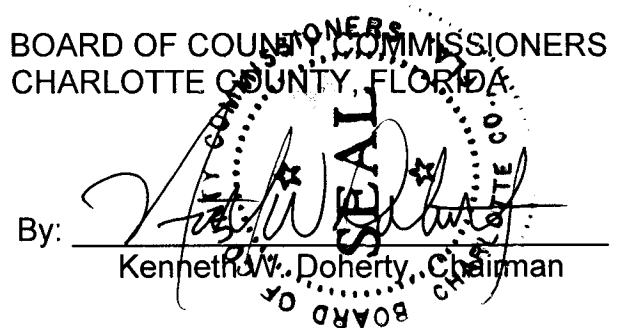 BOARD OF COUNTY COMMISSIONERS
CHARLOTTE COUNTY, FLORIDA
By:
Kenneth W. Doherty, Chairman
BOARD OF COUNTY COMMISSIONERS
CHARLOTTE CO. FLA.
SEAL